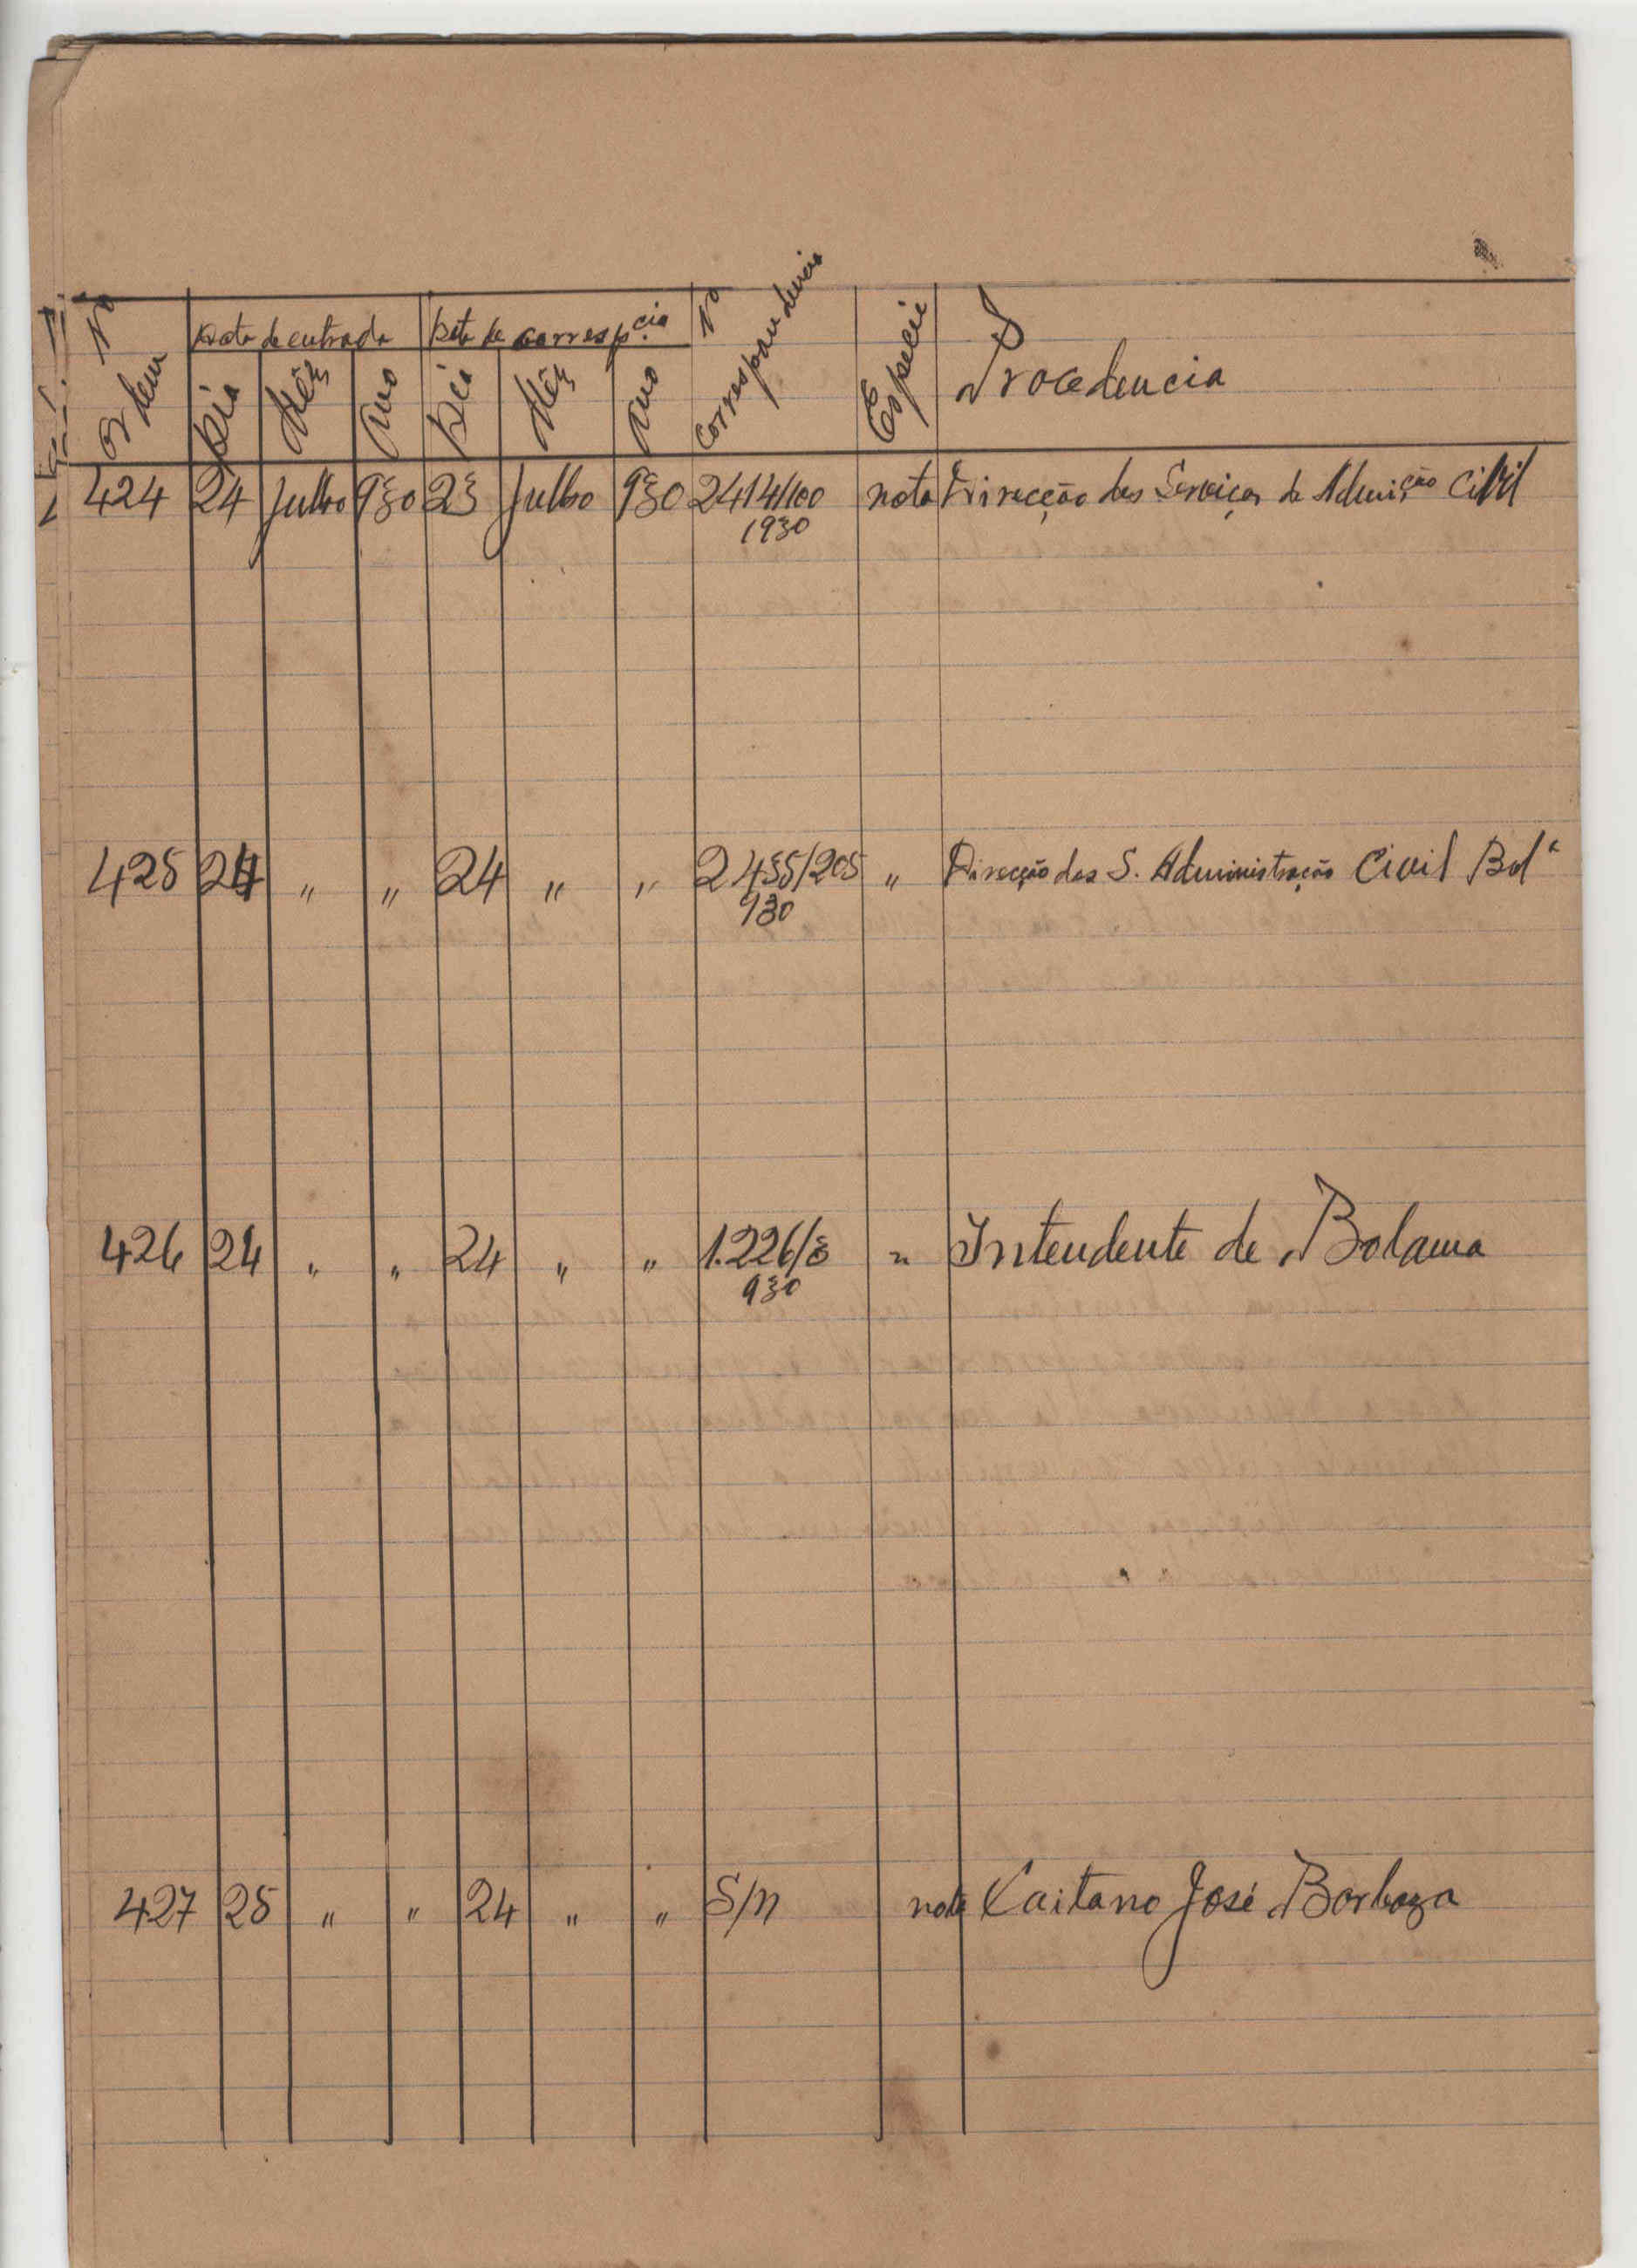 Nº Ordem Data de entrada Data de corresp.cia Nº Correspondencia Especie Procedencia
Dia Mês Ano Dia Mês Ano
424 24 Julho 930 23 Julho 930 2414/100 nota Direcção dos Serviços de Adminição Civil
1930
425 24 " " 24 " " 2455/205 " Direcção dos S. Administração Civil Bolª
930
426 24 " " 24 " " 1.226/3 " Intendente de Bolama
930
427 25 " " 24 " " S/n nota Caitano José Barboza